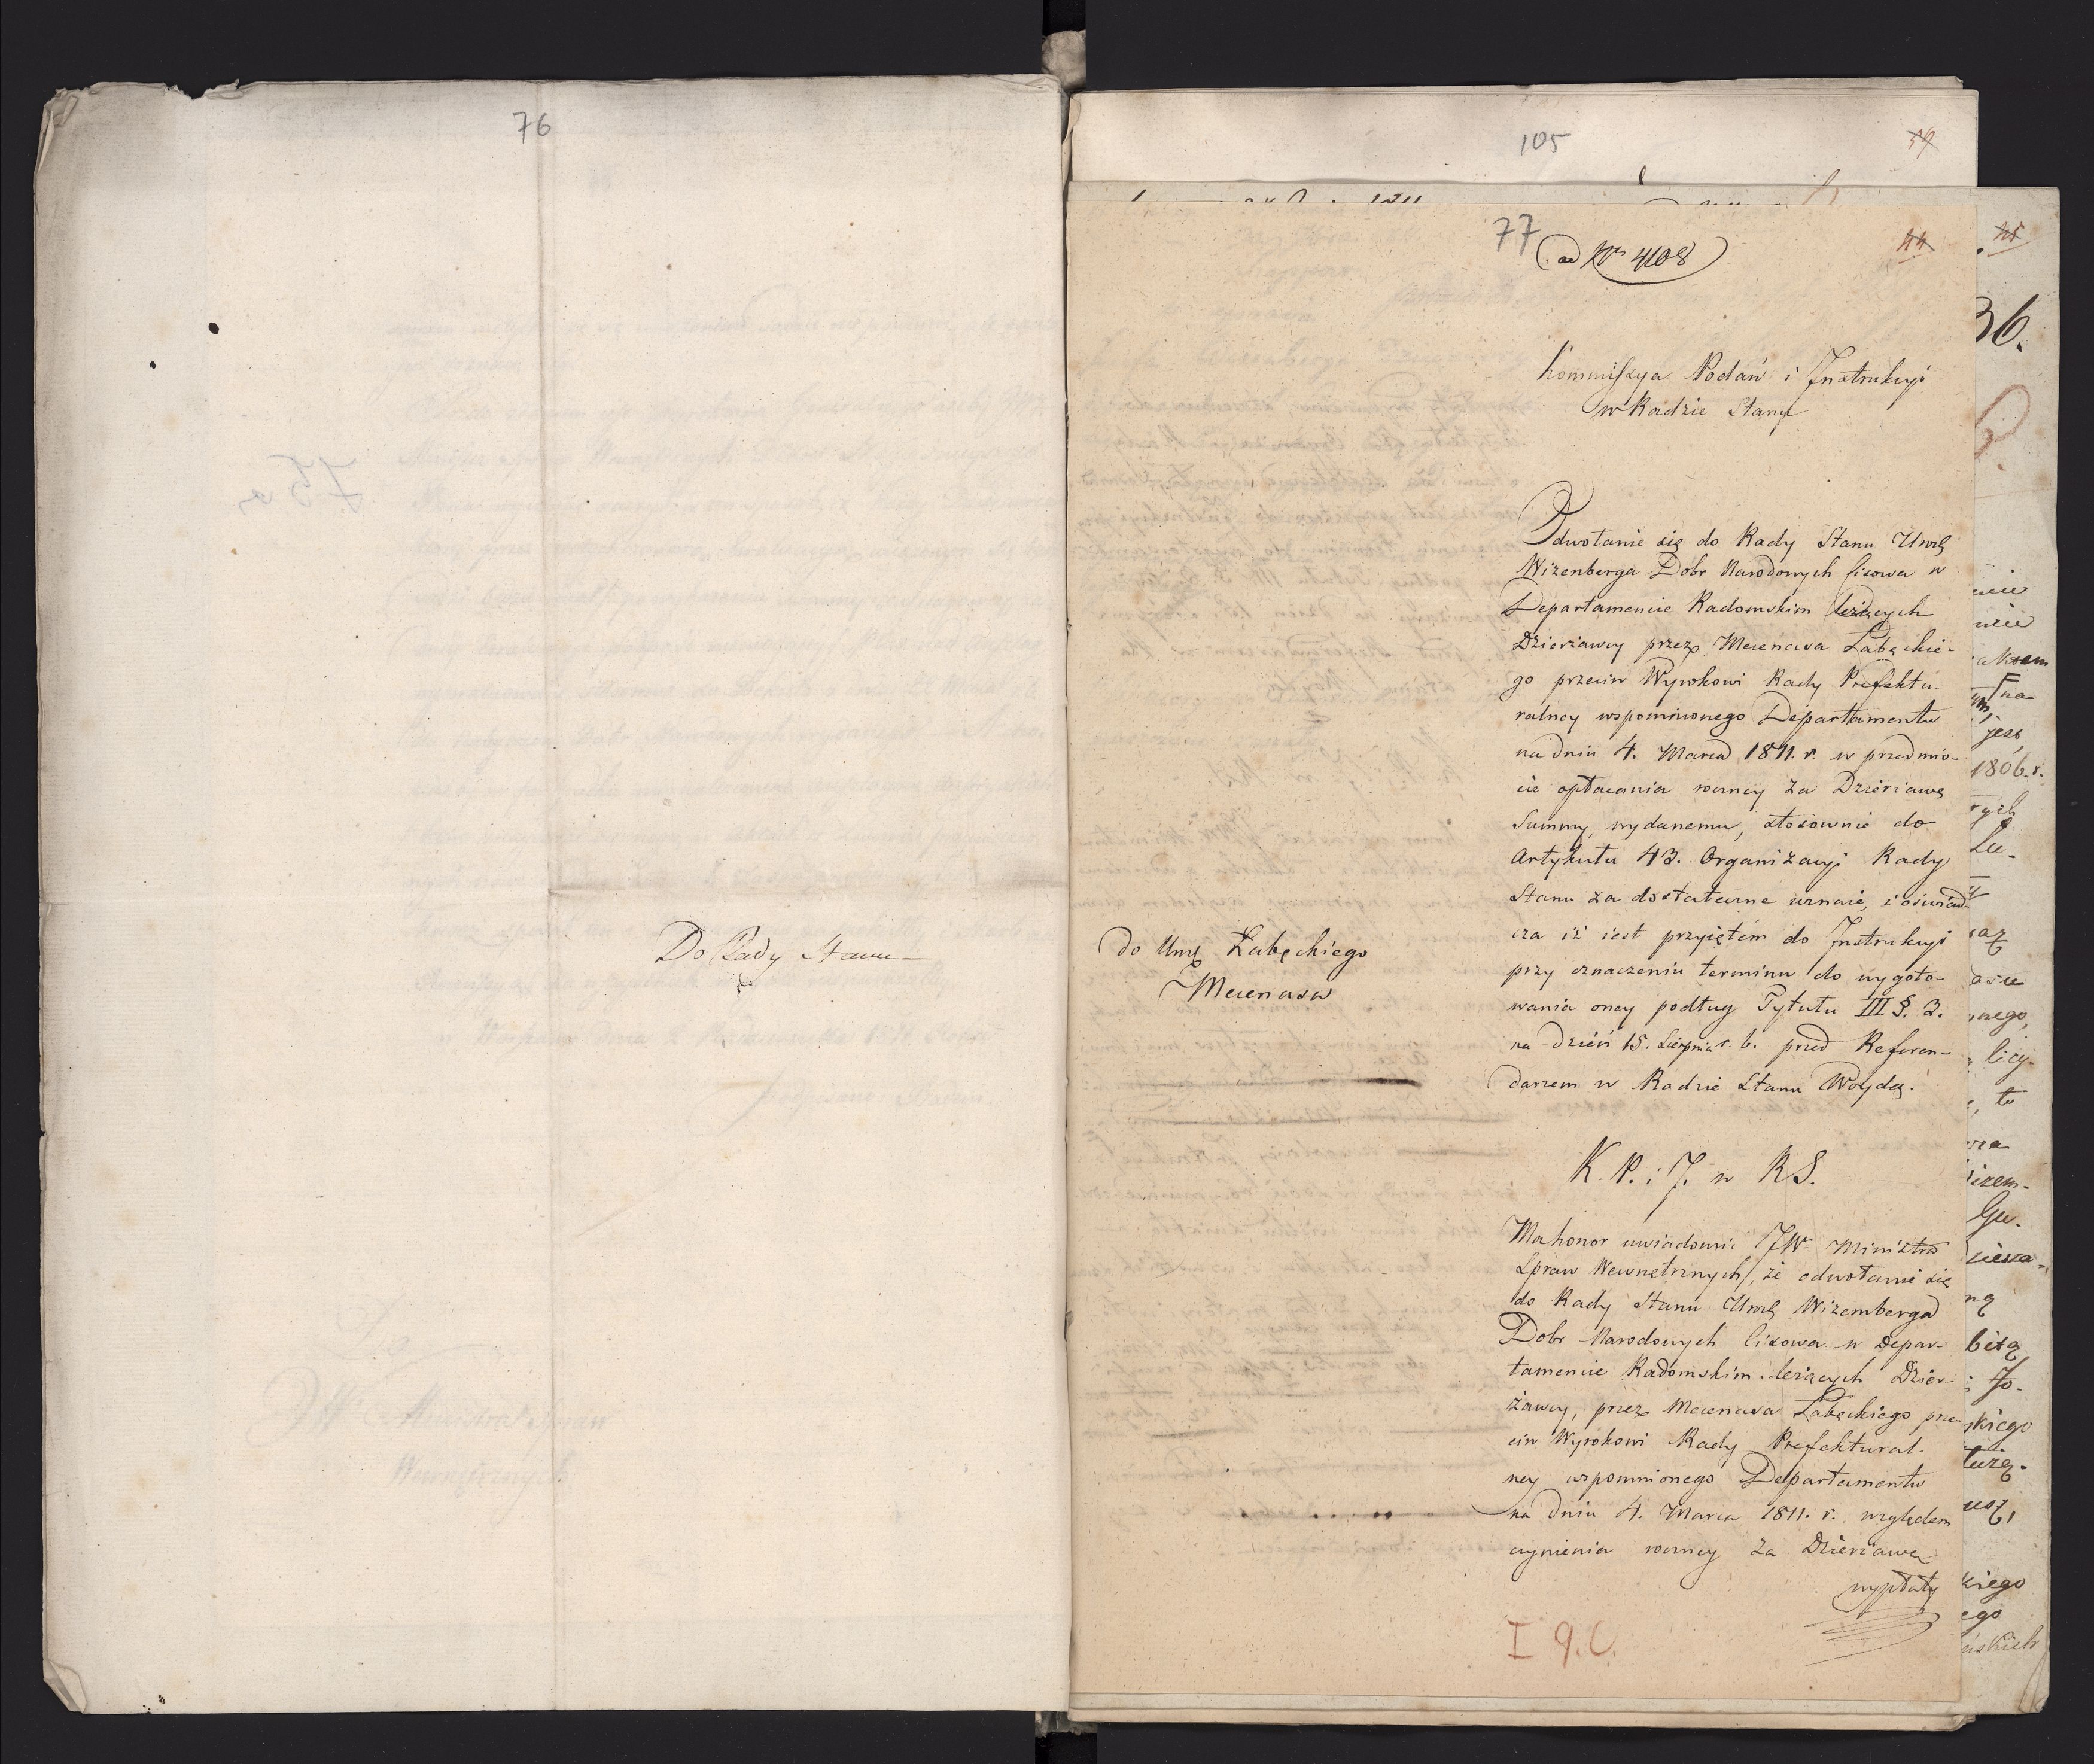 76
Do Rady Stanu
105
59
77
ad Nr 4108
44
45
36.
Kommissya Podań i Instrukcyi
w Radzie Stanu
Odwołanie się do Rady Stanu Urodz
Wizenberga Dobr Narodowych Cisowa w
Departamencie Radomskim leżących
Dzierżawcy przez Mecenasa Łabęckie-
go przeciw Wyrokowi Rady Prefektu-
ralney wspomnionego Departamentu
na dniu 4. Marca 1811. r. w przedmio-
cie opłacania roczney za Dzierżawę
Summy, wydanemu, stosownie do
Artykułu 43. Organizacyi Rady
Stanu za dostateczne uznaie, i oświad-
cza iż iest przyiętém do Instrukcyi
przy oznaczeniu terminu do wygoto-
wania oney podług Tytułu III §. 3.
na dzień 15. Sierpnia r. b. przed Referen-
darzem w Radzie Stanu Woydą.
do Urodz Łabęckiego
Mecenasa
K. P. i J. w R S.
Ma honor uwiadomić JW Ministra
Spraw Wewnętrznych, że odwołanie się
do Rady Stanu Urodz Wizemberga
Dobr Narodowych Cisowa w Depar-
tamencie Radomskim leżących Dzier-
żawcy, przez Mecenasa Łabęckiego prze-
ciw Wyrokowi Rady Prefektural-
ney wspomnionego Departamentu
na dniu 4. Marca 1811. r. względem
czynienia roczney za Dzierżawę
wypłaty
I 9. C.